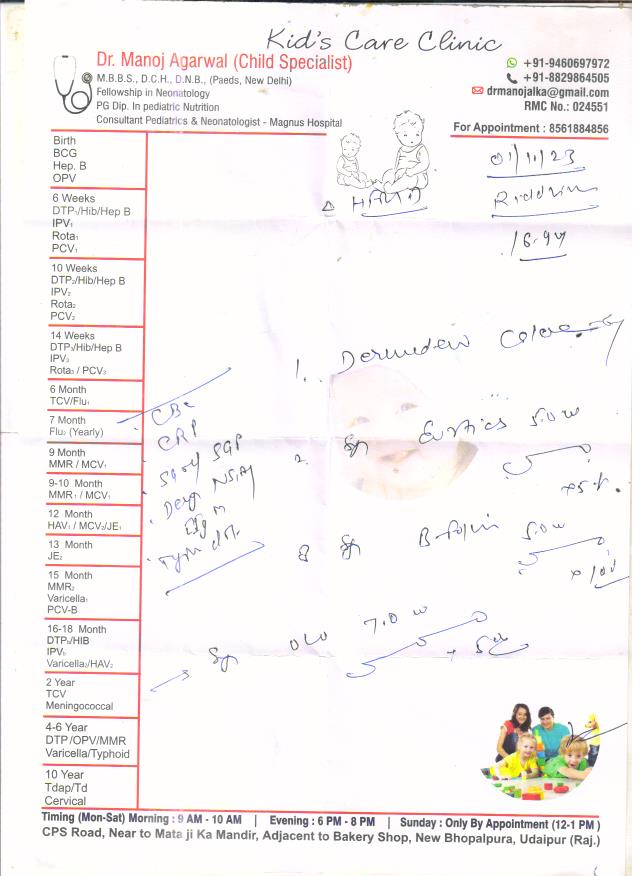 Kid's Care Clinic
Dr. Manoj Agarwal (Child Specialist)
M.B.B.S., D.C.H., D.N.B., (Paeds, New Delhi)
Fellowship in Neonatology
PG Dip. In pediatric Nutrition
Consultant Pediatrics & Neonatologist - Magnus Hospital
+91-9460697972
+91-8829864505
drmanojalka@gmail.com
RMC No.: 024551
For Appointment : 8561884856
01/11/23
16.94
Birth
BCG
Hep. B
OPV
6 Weeks
DTP₁/Hib/Hep B
IPV₁
Rota₁
PCV₁
10 Weeks
DTP₂/Hib/Hep B
IPV₂
Rota₂
PCV₂
14 Weeks
DTP₃/Hib/Hep B
IPV₃
Rota₃ / PCV₃
6 Month
TCV/Flu₁
7 Month
Flu₂ (Yearly)
9 Month
MMR / MCV₁
9-10 Month
MMR₁ / MCV₁
12 Month
HAV₁ / MCV₂/JE₁
13 Month
JE₂
15 Month
MMR₂
Varicella₁
PCV-B
16-18 Month
DTP₄/HIB
IPV₄
Varicella₂/HAV₂
2 Year
TCV
Meningococcal
4-6 Year
DTP/OPV/MMR
Varicella/Typhoid
10 Year
Tdap/Td
Cervical
CBC
CRP
SGPT
NS1Ag
IgM
1.
2. Syp 5.0
Syp 5.0
Syp 7.0
Timing (Mon-Sat) Morning : 9 AM - 10 AM | Evening : 6 PM - 8 PM | Sunday : Only By Appointment (12-1 PM)
CPS Road, Near to Mata ji Ka Mandir, Adjacent to Bakery Shop, New Bhopalpura, Udaipur (Raj.)